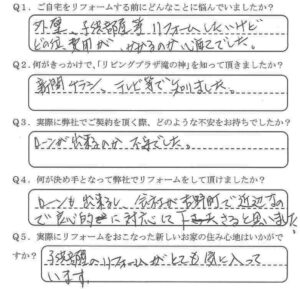 Q1. ご自宅をリフォームする前にどんなことに悩んでいましたか?
外壁、子供部屋等リフォームしたいけど
どの位費用がかかるのか心配でした。
Q2.何がきっかけで、「リビングプラザ滝の神」を知って頂きましたか?
新聞チラシ、テレビ等で知りました。
Q3. 実際に弊社でご契約を頂く際、どのような不安をお持ちでしたか?
ローンが出来るのか、不安でした。
Q4. 何が決め手となって弊社でリフォームをして頂けましたか?
ローンも出来るし、会社が吉野町で近辺なの
で良心的に対応して下さると思いました
Q5. 実際にリフォームをおこなった新しいお家の住み心地はいかがで
すか?
子供部屋のリフォームがとても気に入って
います。